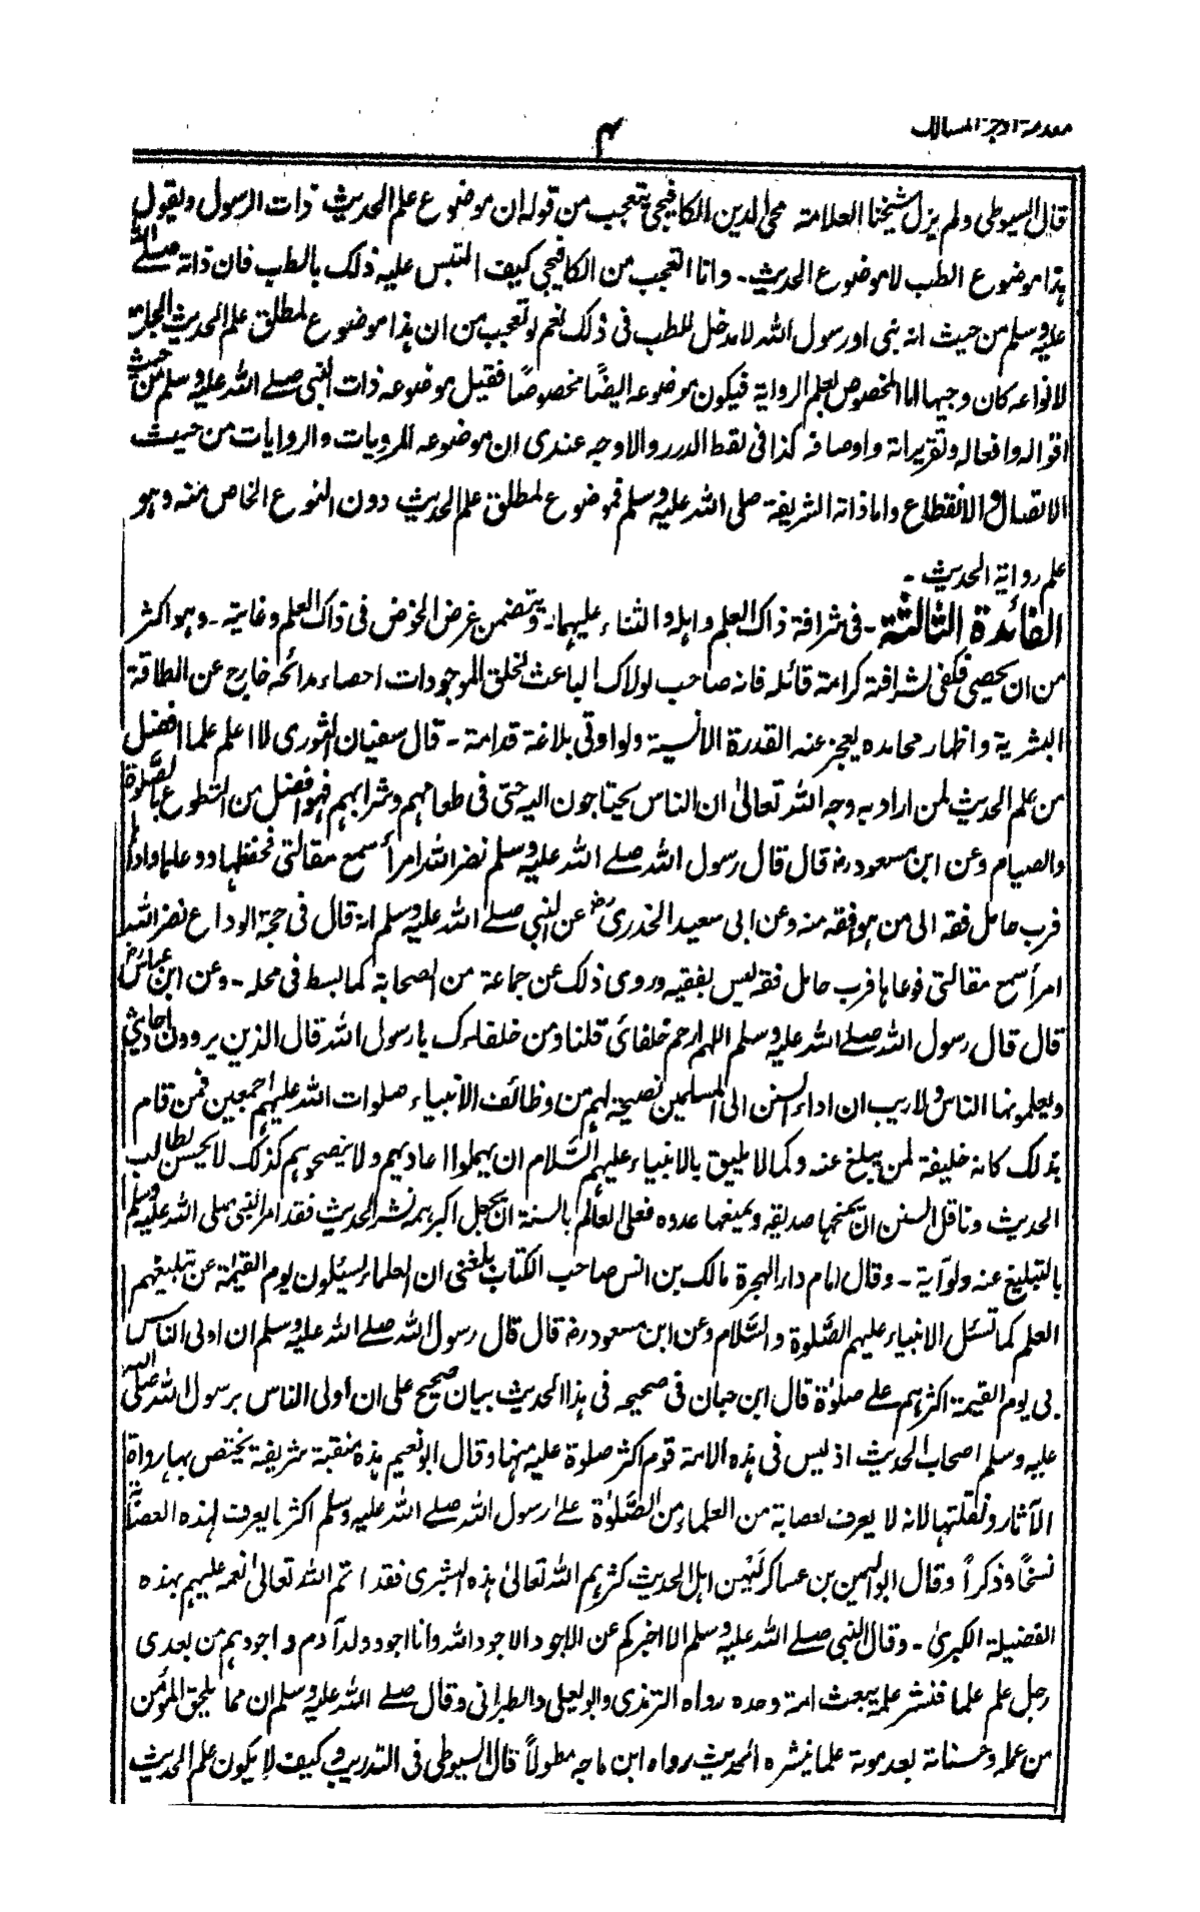 مقدمة اوجز المسالك
۴
قال السيوطى ولم يزل شيخنا العلامة محى الدين الكافيجى يتعجب من قوله ان موضوع علم الحديث ذات الرسول ويقول
ہذا موضوع الطب لا موضوع الحديث۔ وانا اتعجب من الكافيجى كيف التبس عليه ذلك بالطب فان ذاته صلے اللہ
عليہ وسلم من حيث انه نبى او رسول اللہ لا مدخل للطب فى ذلك نعم لو تعجب من ان ہذا موضوع لمطلق علم الحديث
لانواعه كان وجيها اما المخصوص بعلم الرواية فيكون موضوعه ايضًا مخصوصًا فقيل موضوعه ذات النبى صلے اللہ عليہ وسلم من حيث
اقواله وافعاله وتقريراته واوصافه كذا فى لقط الدرر والاوجه عندى ان موضوعه المرويات والروايات من حيث
الاتصال والانقطاع واما ذاته الشريفة صلى اللہ عليہ وسلم فموضوع لمطلق علم الحديث دون النوع الخاص منه وہو
علم رواية الحديث۔
الفائدة الثالثة۔ فى شرافة ذاك العلم واہله والثناء عليہما۔ ويتضمن غرض الخوض فى ذاك العلم وغايته۔ وہو اكثر
من ان يحصى فكفى لشرافته كرامة قائله فانه صاحب لولاك الباعث لخلق الموجودات احصاء مدائحه خارج عن الطاقة
البشرية واظہار محامده يعجز عنه القدرة الانسية ولو اوتى بلاغة قدامة۔ قال سفيان الثورى لا اعلم علما افضل
من علم الحديث لمن اراد به وجه اللہ تعالىٰ ان الناس يحتاجون اليه حتى فى طعامہم وشرابہم فہو افضل من التطوع بالصَّلوٰة
والصيام وعن ابن مسعود رض قال قال رسول اللہ صلے اللہ عليہ وسلم نضر اللہ امرأ سمع مقالتى فحفظہا ووعاہا واداہا
فرب حامل فقه الى من ہو افقه منه وعن ابى سعيد الخدرى رض عن النبى صلے اللہ عليہ وسلم انه قال فى حجة الوداع نضر اللہ
امرأ سمع مقالتى فوعاہا فرب حامل فقه ليس بفقيه وروى ذلك عن جماعة من الصحابة كما بسط فى محله۔ وعن ابن عباس رض
قال قال رسول اللہ صلے اللہ عليہ وسلم اللہم ارحم خلفائى قلنا ومن خلفاءك يا رسول اللہ قال الذين يروون احاديثى
ويعلمونہا الناس ولا ريب ان اداء السنن الى المسلمين نصيحة لہم من وظائف الانبياء صلوات اللہ عليہم اجمعين فمن قام
بذلك كانه خليفة لمن يبلغ عنه وكما لا يليق بالانبياء عليہم السَّلام ان يہملوا اعاديہم ولا ينصحوہم كذلك لا يحسن لطالب
الحديث وناقل السنن ان يمنحہا صديقه ويمنعہا عدوه فعلى العالم بالسنة ان يجعل اكبر ہمه نشر الحديث فقد امر النبى صلى اللہ عليہ وسلم
بالتبليغ عنه ولو آية۔ وقال امام دار الہجرة مالك بن انس صاحب الكتاب بلغنى ان العلماء يسئلون يوم القيمة عن تبليغہم
العلم كما تسئل الانبياء عليہم الصَّلوٰة والسَّلام وعن ابن مسعود رض قال قال رسول اللہ صلے اللہ عليہ وسلم ان اولى الناس
بى يوم القيمة اكثرہم على صلوٰة قال ابن حبان فى صحيحه فى ہذا الحديث بيان صحيح على ان اولى الناس برسول اللہ صلى اللہ
عليہ وسلم اصحاب الحديث اذ ليس فى ہذه الامة قوم اكثر صلوة عليه منہا وقال ابو نعيم ہذه منقبة شريفة يختص بہا رواة
الآثار ونقلتہا لانه لا يعرف لعصابة من العلماء من الصَّلوٰة علىٰ رسول اللہ صلے اللہ عليہ وسلم اكثر ما يعرف لہذه العصابة
نسخًا وذكراً وقال ابو اليمن بن عساكر ليہن اہل الحديث كثرہم اللہ تعالىٰ ہذه البشرى فقد اتم اللہ تعالىٰ نعمه عليہم بہذه
الفضيلة الكبرىٰ۔ وقال النبى صلے اللہ عليہ وسلم الا اخبركم عن الاجود الاجود اللہ وانا اجود ولد آدم واجودہم من بعدى
رجل علم علما فنشر علمه يبعث امة وحده رواه الترمذى وابو يعلى والطبرانى وقال صلے اللہ عليہ وسلم ان مما يلحق المؤمن
من عمله وحسناته بعد موته علما نشره الحديث رواه ابن ماجه مطولاً قال السيوطى فى التدريب وكيف لا يكون علم الحديث